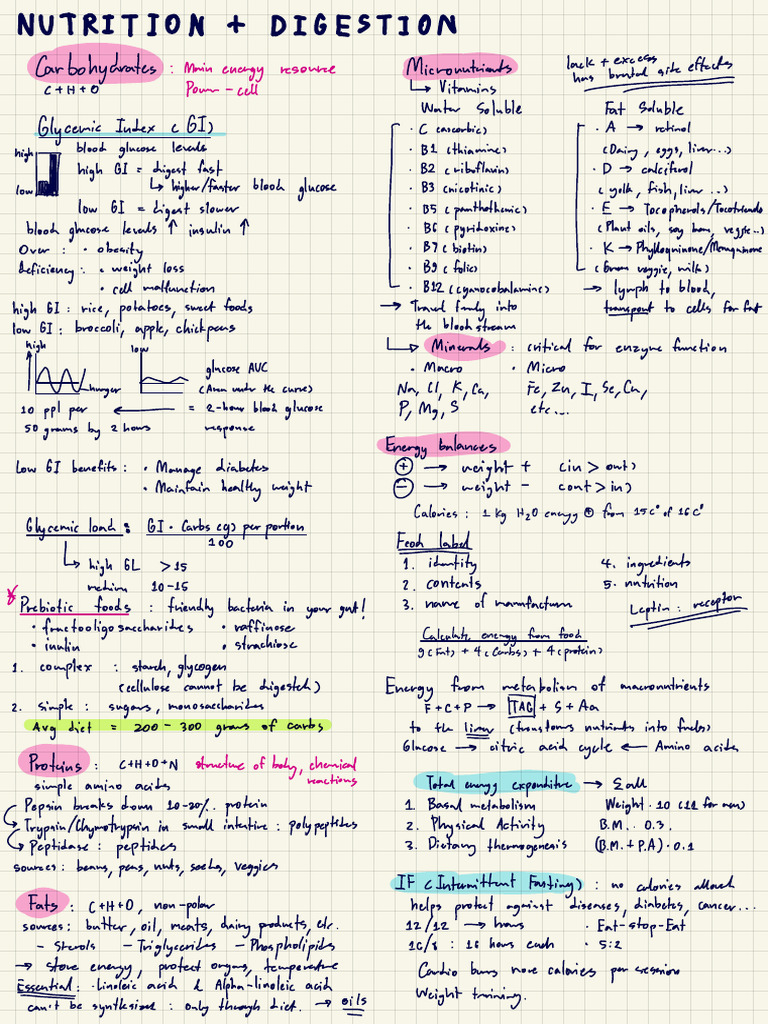 NUTRITION + DIGESTION
Carbohydrates : Main energy resource
C+H+O Power - cell
Glycemic Index (GI)
high
low
blood glucose levels
high GI = digest fast
↳ higher/faster blood glucose
low GI = digest slower
blood glucose levels ↑ insulin ↑
Over : • obesity
Deficiency : • weight loss
• cell malfunction
high GI : rice, potatoes, sweet foods
low GI : broccoli, apple, chickpeas
high low
hunger
glucose AUC
(Area under the curve)
10 ppl per ← = 2-hour blood glucose
50 grams by 2 hours response
Low GI benefits : • Manage diabetes
• Maintain healthy weight
Glycemic load : GI · Carbs (g) per portion
100
↳ high GL >15
medium 10-15
* Prebiotic foods : friendly bacteria in your gut!
• fructooligosaccharides • raffinose
• inulin • strachiose
1. complex : starch, glycogen
(cellulose cannot be digested)
2. simple : sugars, monosaccharides
Avg diet = 200 - 300 grams of carbs
Proteins : C+H+O+N structure of body, chemical
reactions
simple amino acids
Pepsin breaks down 10-20% protein
Trypsin/Chymotrypsin in small intestine : polypeptides
Peptidase : peptides
sources : beans, peas, nuts, seeds, veggies
Fats : C+H+O, non-polar
sources : butter, oil, meats, dairy products, etc.
- Sterols - Triglycerides - Phospholipids
→ store energy, protect organs, temperature
Essential : · Linoleic acid & Alpha-linoleic acid
can't be synthesized : only through diet. → oils
Micronutrients
lack + excess
has brutal site effects
↳ Vitamins
Water Soluble
• C (ascorbic)
• B1 (thiamine)
• B2 (riboflavin)
• B3 (nicotinic)
• B5 (panthothenic)
• B6 (pyridoxine)
• B7 (biotin)
• B9 (folic)
• B12 (cyanocobalamine)
→ Travel freely into
the bloodstream
Fat Soluble
• A → retinol
(Dairy, eggs, liver...)
• D → calciferol
(yolk, fish, liver ..)
• E → Tocopherols/Tocotrienols
(Plant oils, soy bean, veggie..)
• K → Phylloquinone/Menaquinone
(Green veggie, milk)
→ lymph to blood,
transport to cells for fat
↳ Minerals : critical for enzyme function
• Macro • Micro
Na, Cl, K, Ca, Fe, Zn, I, Se, Cu,
P, Mg, S etc...
Energy balances
+ → weight + (in > out)
- → weight - (out > in)
Calories : 1 kg H2O energy from 15C° of 16C°
Food label
1. identity 4. ingredients
2. contents 5. nutrition
3. name of manufacturer
Leptin : receptor
Calculate energy from food
9(Fat) + 4(carbs) + 4(protein)
Energy from metabolism of macronutrients
F + C + P → TAG + S + Aa
to the liver (transforms nutrients into fuels)
Glucose → citric acid cycle ← Amino acids
Total energy expenditure → Σ all
1. Basal metabolism Weight · 10 (11 for men)
2. Physical Activity B.M. · 0.3.
3. Dietary thermogenesis (B.M. + P.A) · 0.1
IF (Intermittent Fasting) : no calories allowed
helps protect against diseases, diabetes, cancer...
12/12 → hours • Eat-stop-Eat
16/8 : 16 hours each • 5:2
Cardio burns more calories per session
Weight training.